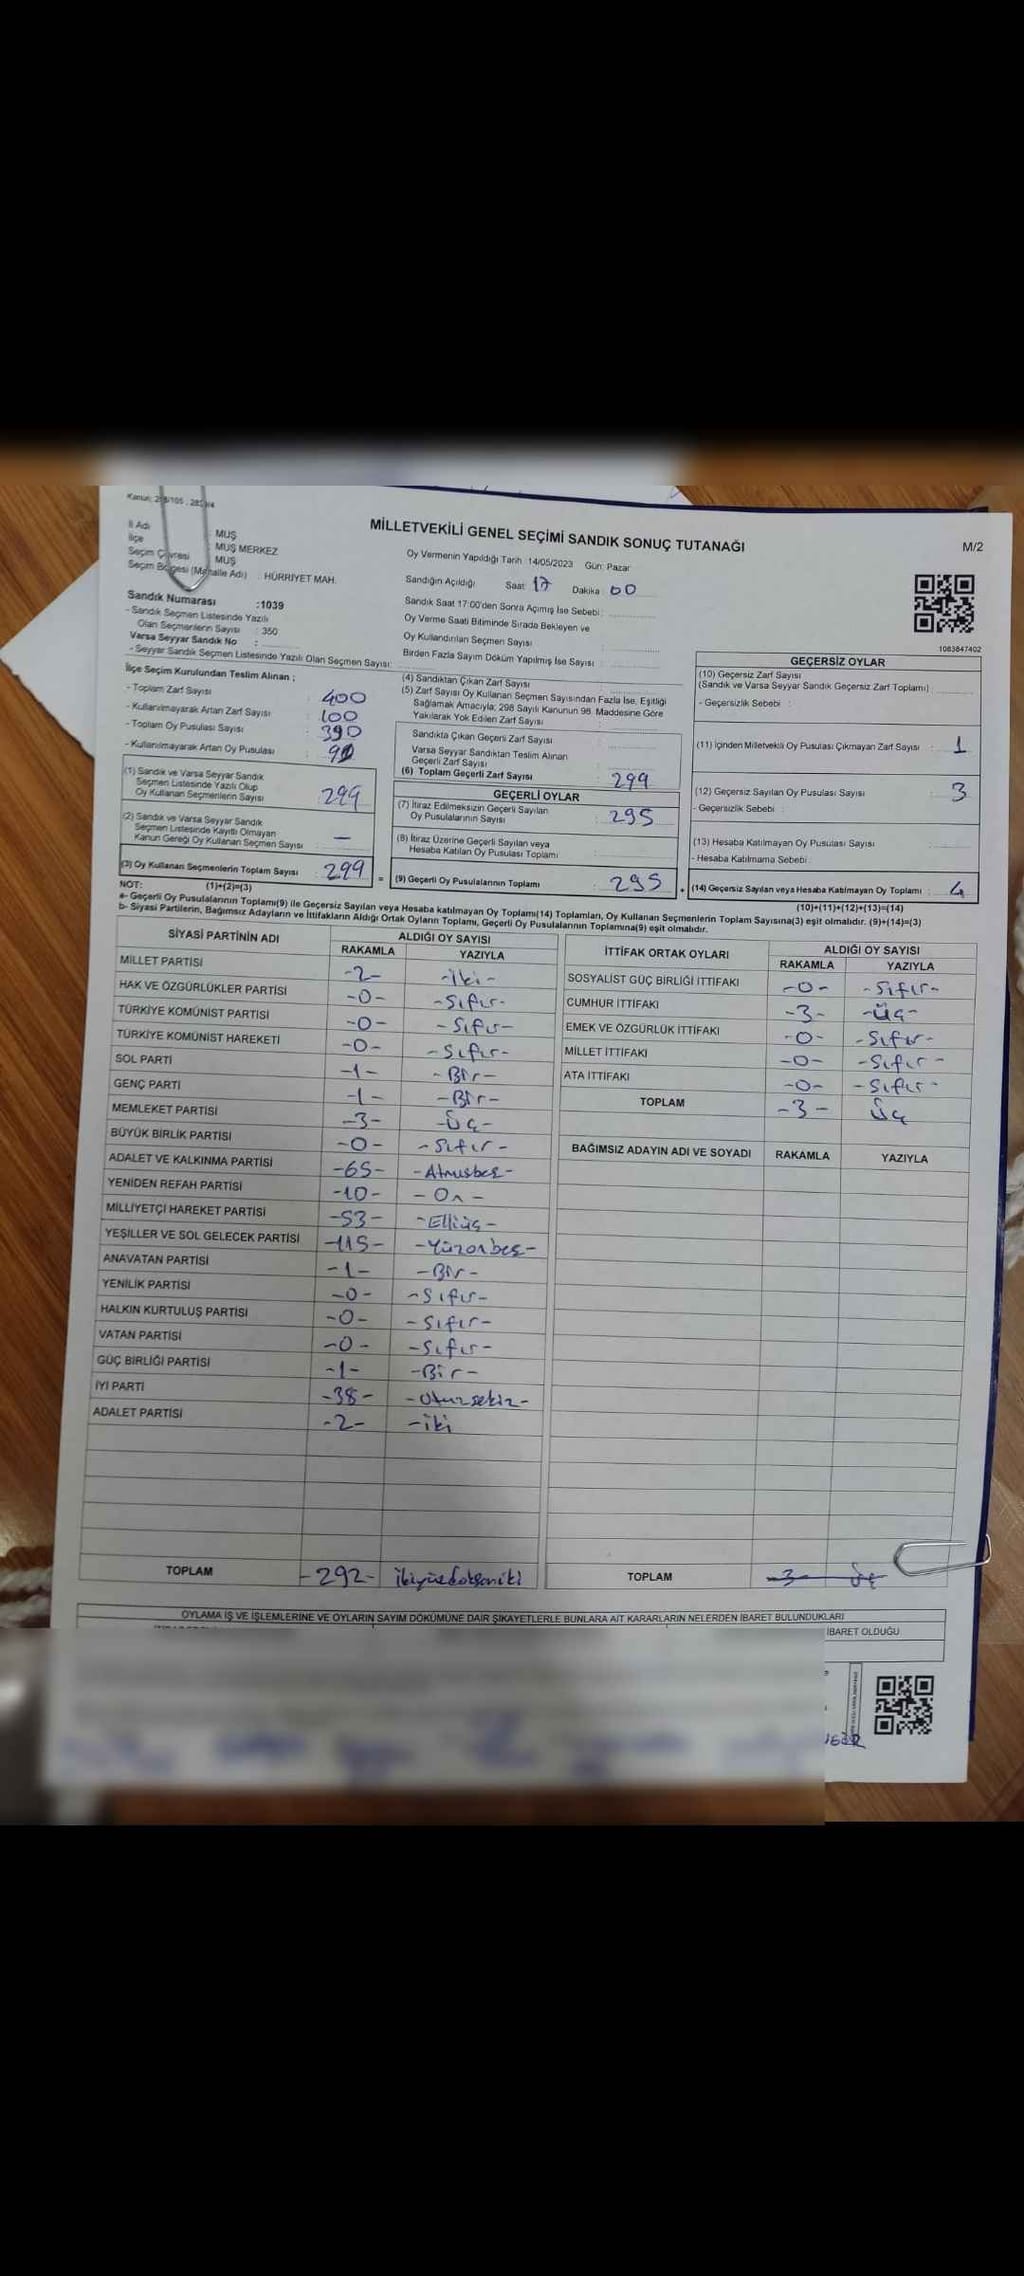 MİLLETVEKİLİ GENEL SEÇİMİ SANDIK SONUÇ TUTANAĞI
M/2
İl Adı : MUŞ
İlçe : MUŞ MERKEZ
Seçim Çevresi : MUŞ
Seçim Bölgesi (Mahalle Adı) : HÜRRİYET MAH.
Oy Vermenin Yapıldığı Tarih : 14/05/2023 Gün: Pazar
Sandığın Açıldığı Saat : 17 Dakika : 00
Sandık Saat 17:00'den Sonra Açımış İse Sebebi :
Oy Verme Saati Bitiminde Sırada Bekleyen ve
Oy Kullandırılan Seçmen Sayısı :
Birden Fazla Sayım Döküm Yapılmış İse Sayısı :
Sandık Numarası :1039
- Sandık Seçmen Listesinde Yazılı
Olan Seçmenlerin Sayısı : 350
Varsa Seyyar Sandık No :
- Seyyar Sandık Seçmen Listesinde Yazılı Olan Seçmen Sayısı:
1083847402
İlçe Seçim Kurulundan Teslim Alınan ;
- Toplam Zarf Sayısı : 400
- Kullanılmayarak Artan Zarf Sayısı : 100
- Toplam Oy Pusulası Sayısı : 390
- Kullanılmayarak Artan Oy Pusulası :
(1) Sandık ve Varsa Seyyar Sandık
Seçmen Listesinde Yazılı Olup
Oy Kullanan Seçmenlerin Sayısı : 299
(2) Sandık ve Varsa Seyyar Sandık
Seçmen Listesinde Kayıtlı Olmayan
Kanun Gereği Oy Kullanan Seçmen Sayısı : —
(3) Oy Kullanan Seçmenlerin Toplam Sayısı : 299
(4) Sandıktan Çıkan Zarf Sayısı
(5) Zarf Sayısı Oy Kullanan Seçmen Sayısından Fazla İse, Eşitliği
Sağlamak Amacıyla; 298 Sayılı Kanunun 98. Maddesine Göre
Yakılarak Yok Edilen Zarf Sayısı :
Sandıkta Çıkan Geçerli Zarf Sayısı :
Varsa Seyyar Sandıktan Teslim Alınan
Geçerli Zarf Sayısı
(6) Toplam Geçerli Zarf Sayısı : 299
GEÇERLİ OYLAR
(7) İtiraz Edilmeksizin Geçerli Sayılan
Oy Pusulalarının Sayısı : 295
(8) İtiraz Üzerine Geçerli Sayılan veya
Hesaba Katılan Oy Pusulası Toplamı :
= (9) Geçerli Oy Pusulalarının Toplamı : 295 +
GEÇERSİZ OYLAR
(10) Geçersiz Zarf Sayısı
(Sandık ve Varsa Seyyar Sandık Geçersiz Zarf Toplamı) :
- Geçersizlik Sebebi :
(11) İçinden Milletvekili Oy Pusulası Çıkmayan Zarf Sayısı : 1
(12) Geçersiz Sayılan Oy Pusulası Sayısı : 3
- Geçersizlik Sebebi :
(13) Hesaba Katılmayan Oy Pusulası Sayısı :
- Hesaba Katılmama Sebebi :
(14) Geçersiz Sayılan veya Hesaba Katılmayan Oy Toplamı : 4
NOT: (1)+(2)=(3)
(10)+(11)+(12)+(13)=(14)
a- Geçerli Oy Pusulalarının Toplamı(9) ile Geçersiz Sayılan veya Hesaba katılmayan Oy Toplamı(14) Toplamları, Oy Kullanan Seçmenlerin Toplam Sayısına(3) eşit olmalıdır. (9)+(14)=(3)
b- Siyasi Partilerin, Bağımsız Adayların ve İttifakların Aldığı Ortak Oyların Toplamı, Geçerli Oy Pusulalarının Toplamına(9) eşit olmalıdır.
SİYASİ PARTİNİN ADI ALDIĞI OY SAYISI
RAKAMLA YAZIYLA
MİLLET PARTİSİ -2- -İki-
HAK VE ÖZGÜRLÜKLER PARTİSİ -0- -Sıfır-
TÜRKİYE KOMÜNİST PARTİSİ -0- -Sıfır-
TÜRKİYE KOMÜNİST HAREKETİ -0- -Sıfır-
SOL PARTİ -1- -Bir-
GENÇ PARTİ -1- -Bir-
MEMLEKET PARTİSİ -3- -Üç-
BÜYÜK BİRLİK PARTİSİ -0- -Sıfır-
ADALET VE KALKINMA PARTİSİ -65- -Atmışbeş-
YENİDEN REFAH PARTİSİ -10- -On-
MİLLİYETÇİ HAREKET PARTİSİ -53- -Elliüç-
YEŞİLLER VE SOL GELECEK PARTİSİ -115- -Yüzonbeş-
ANAVATAN PARTİSİ -1- -Bir-
YENİLİK PARTİSİ -0- -Sıfır-
HALKIN KURTULUŞ PARTİSİ -0- -Sıfır-
VATAN PARTİSİ -0- -Sıfır-
GÜÇ BİRLİĞİ PARTİSİ -1- -Bir-
İYİ PARTİ -38- -Otuzsekiz-
ADALET PARTİSİ -2- -iki
TOPLAM -292- ikiyüzdoksaniki
İTTİFAK ORTAK OYLARI ALDIĞI OY SAYISI
RAKAMLA YAZIYLA
SOSYALİST GÜÇ BİRLİĞİ İTTİFAKI -0- -Sıfır-
CUMHUR İTTİFAKI -3- -Üç-
EMEK VE ÖZGÜRLÜK İTTİFAKI -0- -Sıfır-
MİLLET İTTİFAKI -0- -Sıfır-
ATA İTTİFAKI -0- -Sıfır-
TOPLAM -3- Üç
BAĞIMSIZ ADAYIN ADI VE SOYADI RAKAMLA YAZIYLA
TOPLAM -3- Üç
OYLAMA İŞ VE İŞLEMLERİNE VE OYLARIN SAYIM DÖKÜMÜNE DAİR ŞİKAYETLERLE BUNLARA AİT KARARLARIN NELERDEN İBARET BULUNDUKLARI
İBARET OLDUĞU